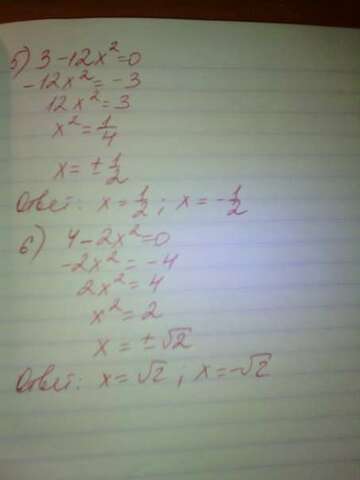 5) 3-12x²=0
-12x²=-3
12x²=3
x²=1/4
x=±1/2
Ответ: x=1/2; x=-1/2
6) 4-2x²=0
-2x²=-4
2x²=4
x²=2
x=±√2
Ответ: x=√2; x=-√2